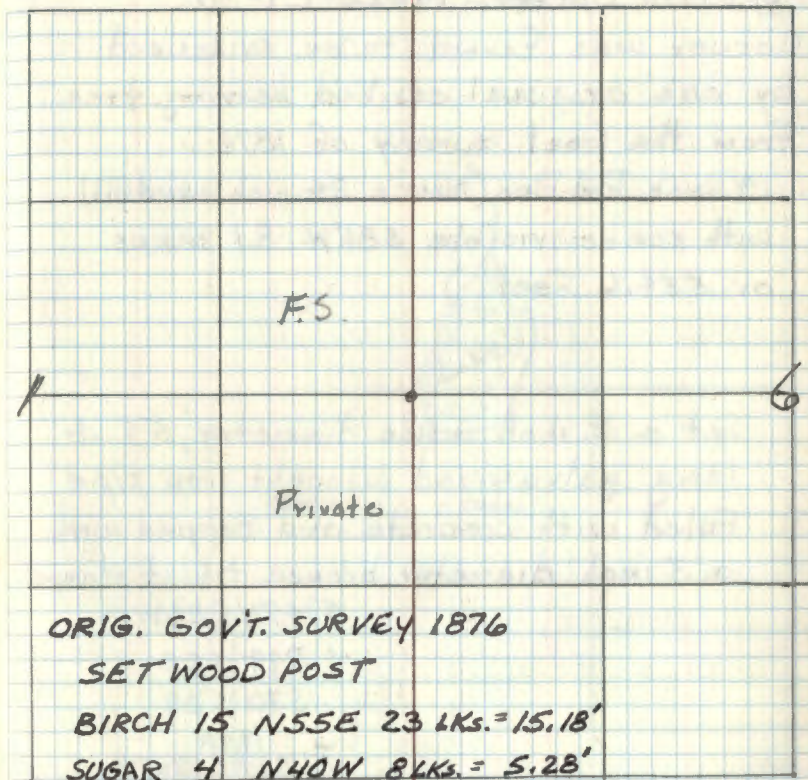 F.S.
1 6
Private
ORIG. GOV'T. SURVEY 1876
SET WOOD POST
BIRCH 15 N55E 23 LKS. = 15.18'
SUGAR 4 N40W 8 LKS. = 5.28'